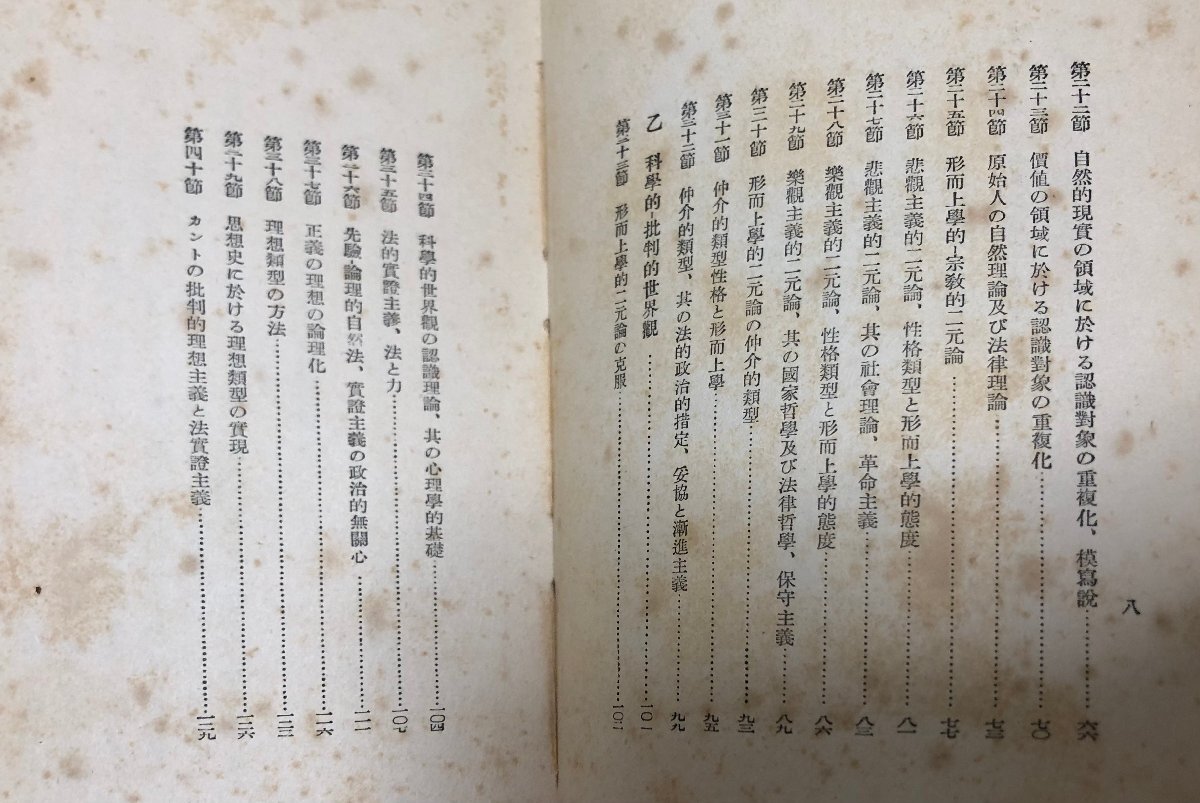 八
第二十二節 自然的現實の領域に於ける認識對象の重複化、模寫說……六六
第二十三節 價値の領域に於ける認識對象の重複化……七〇
第二十四節 原始人の自然理論及び法律理論……七三
第二十五節 形而上學的-宗教的二元論……七七
第二十六節 悲觀主義的二元論、性格類型と形而上學的態度……八一
第二十七節 悲觀主義的二元論、其の社會理論、革命主義……八三
第二十八節 樂觀主義的二元論、性格類型と形而上學的態度……八六
第二十九節 樂觀主義的二元論、其の國家哲學及び法律哲學、保守主義……八九
第三十節 形而上學的二元論の仲介的類型……九三
第三十一節 仲介的類型性格と形而上學……九五
第三十二節 仲介的類型、其の法的政治的措定、妥協と漸進主義……九九
乙 科學的-批判的世界觀……一〇一
第三十三節 形而上學的二元論の克服……一〇一
第三十四節 科學的世界觀の認識理論、其の心理學的基礎……一〇四
第三十五節 法的實證主義、法と力……一〇七
第三十六節 先驗-論理的自然法、實證主義の政治的無關心……一一一
第三十七節 正義の理想の論理化……一一六
第三十八節 理想類型の方法……一二三
第三十九節 思想史に於ける理想類型の實現……一二六
第四十節 カントの批判的理想主義と法實證主義……一二九